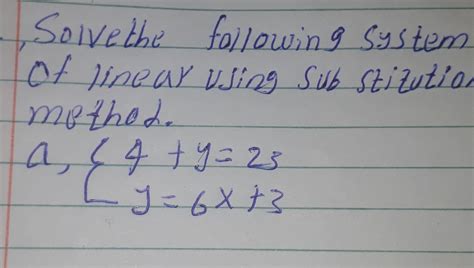 , Solvethe following system
Of linear using Sub stitution
method.
a, { 4 + y = 23
y = 6x + 3